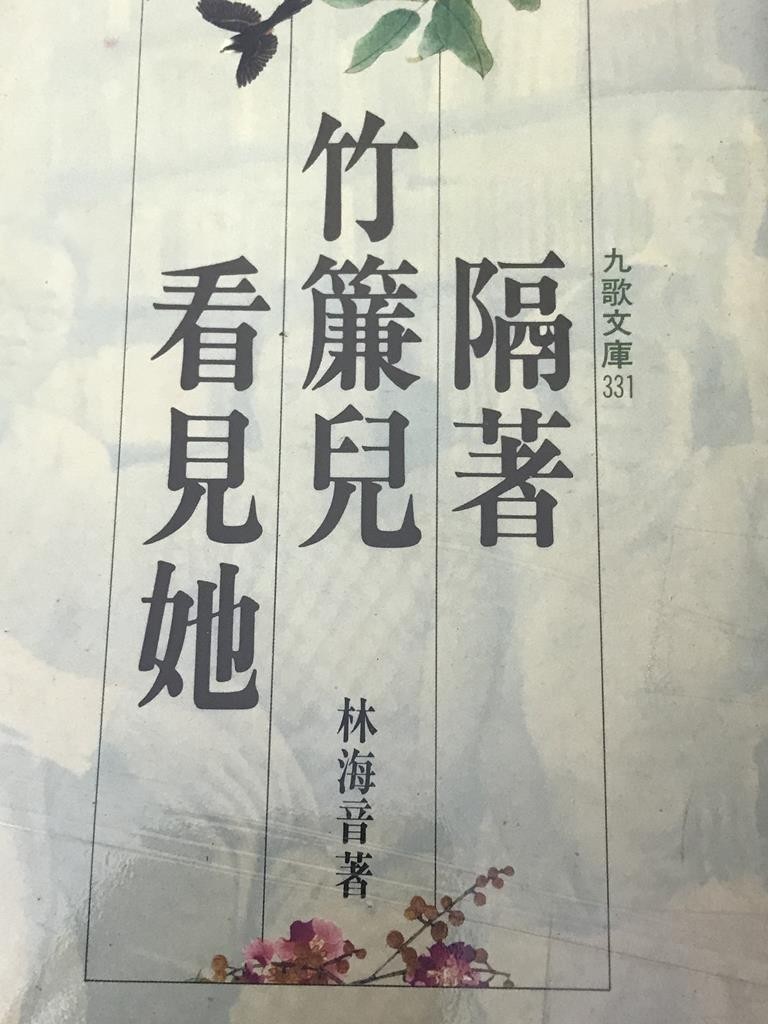 九歌文庫331
隔著
竹簾兒
看見她
林海音著